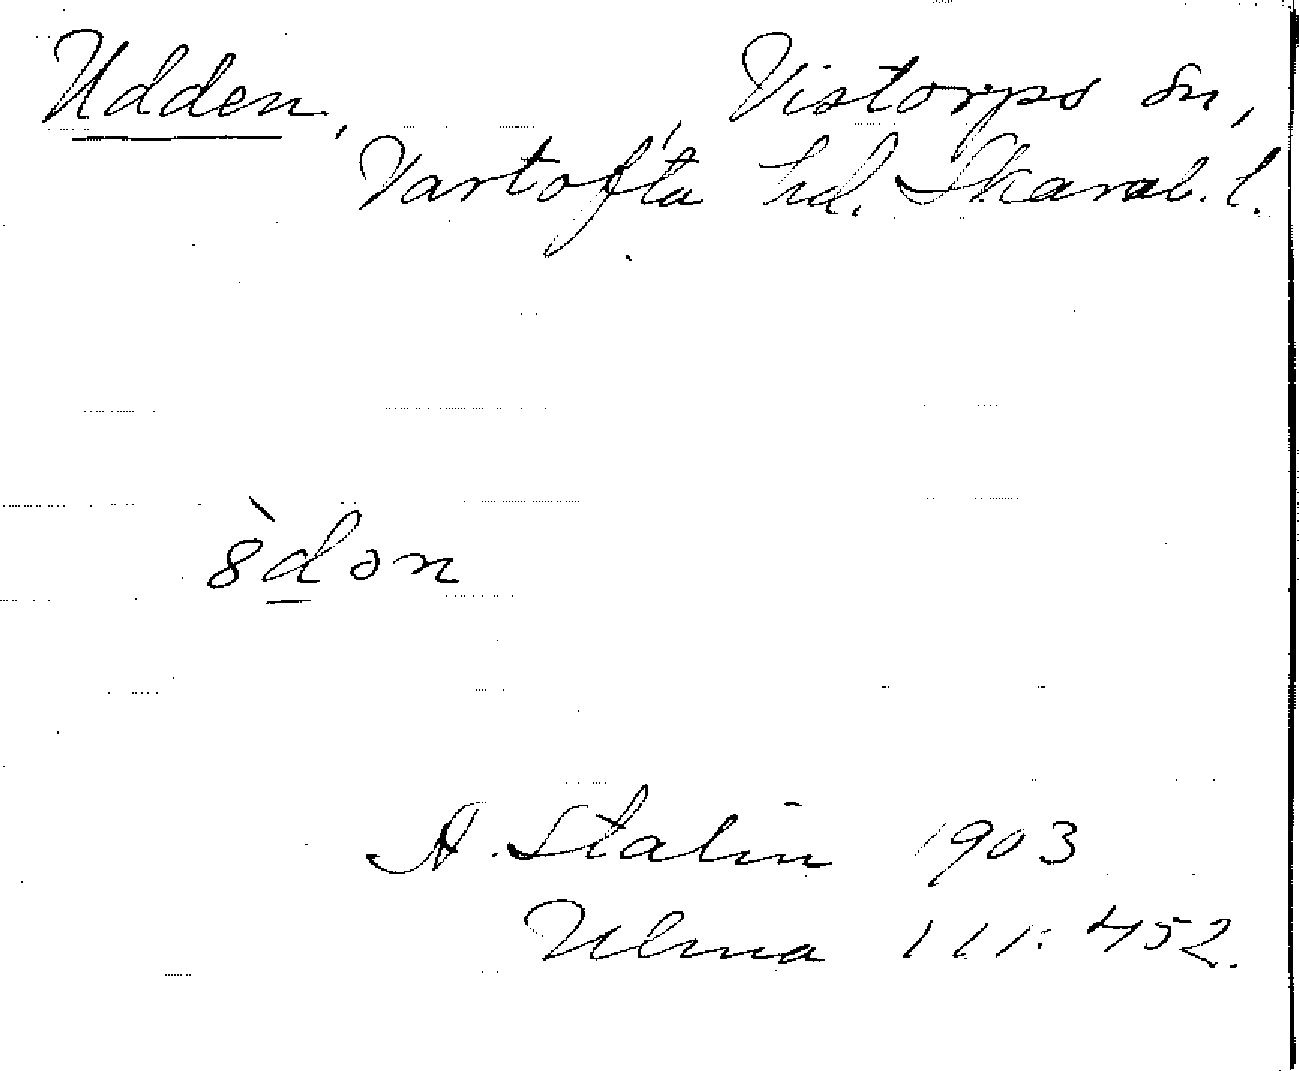 Udden, Vistorps sn,
Vartofta hd. Skarab. l.
8̀d̲ən
A. Stalin 1903
Ulma 111:452.